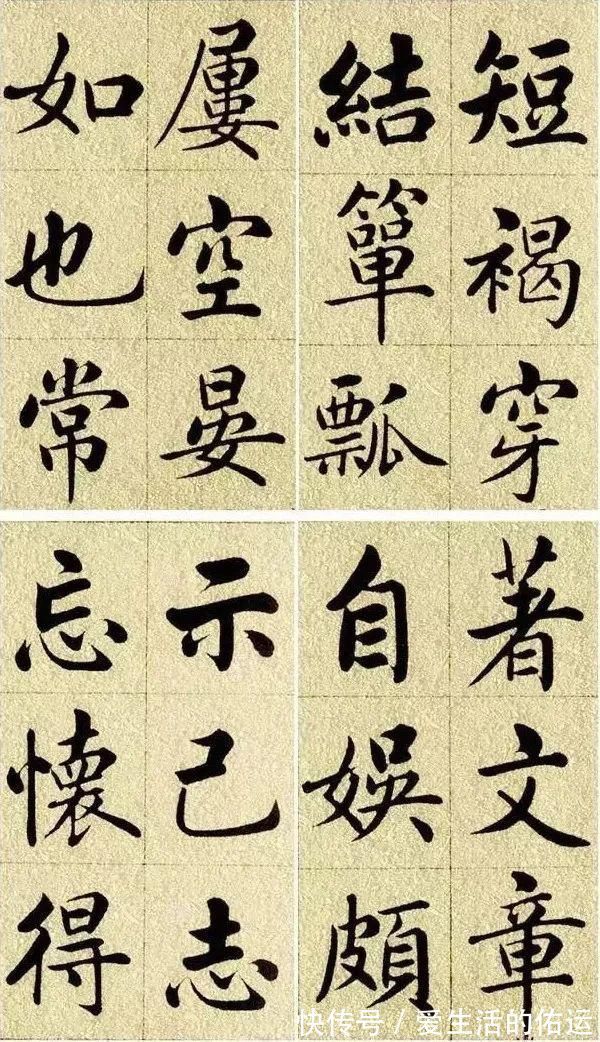 短褐穿
結簞瓢
屢空晏
如也常
著文章
自娛頗
示己志
忘懷得
快传号 / 爱生活的佑运